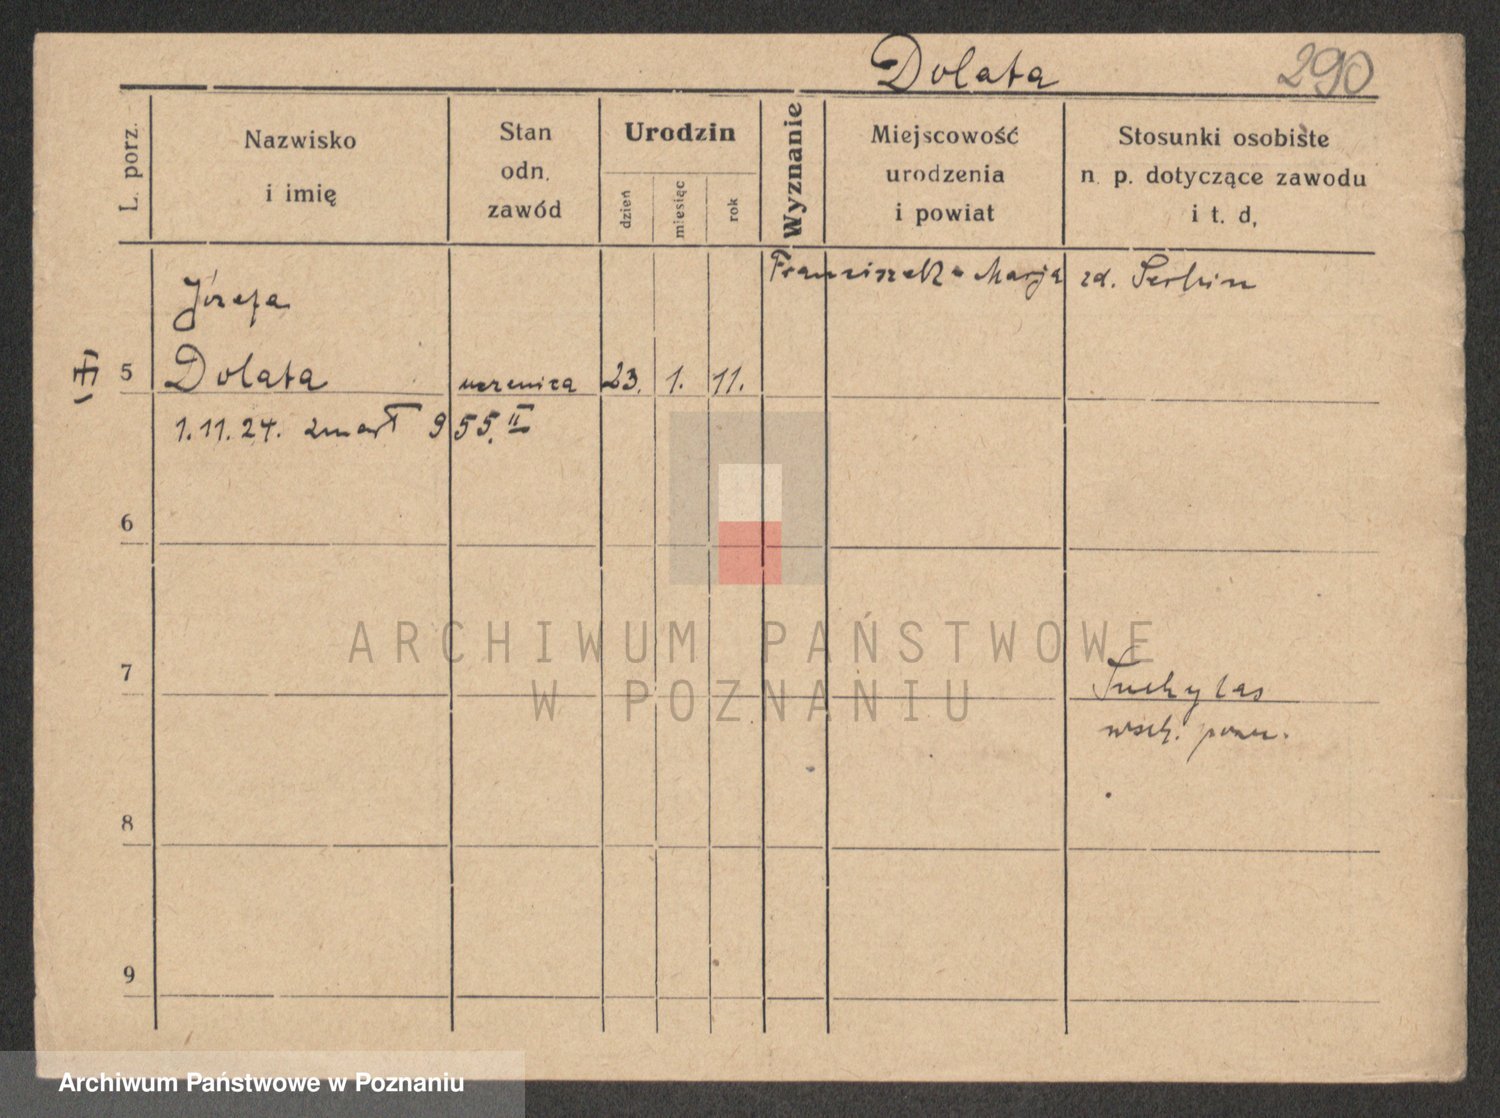 Dolata 290
L. porz.
Nazwisko
i imię
Stan
odn.
zawód
Urodzin
dzień
miesiąc
rok
Wyznanie
Miejscowość
urodzenia
i powiat
Stosunki osobiste
n. p. dotyczące zawodu
i t. d.
Franciszek - Marja zd.
Józefa
5 Dolata uczenica 23. 1. 11.
1.11.24. zmarł 955. II
6
7
Suchylas
wsch. pozn.
8
9
ARCHIWUM PAŃSTWOWE
W POZNANIU
Archiwum Państwowe w Poznaniu